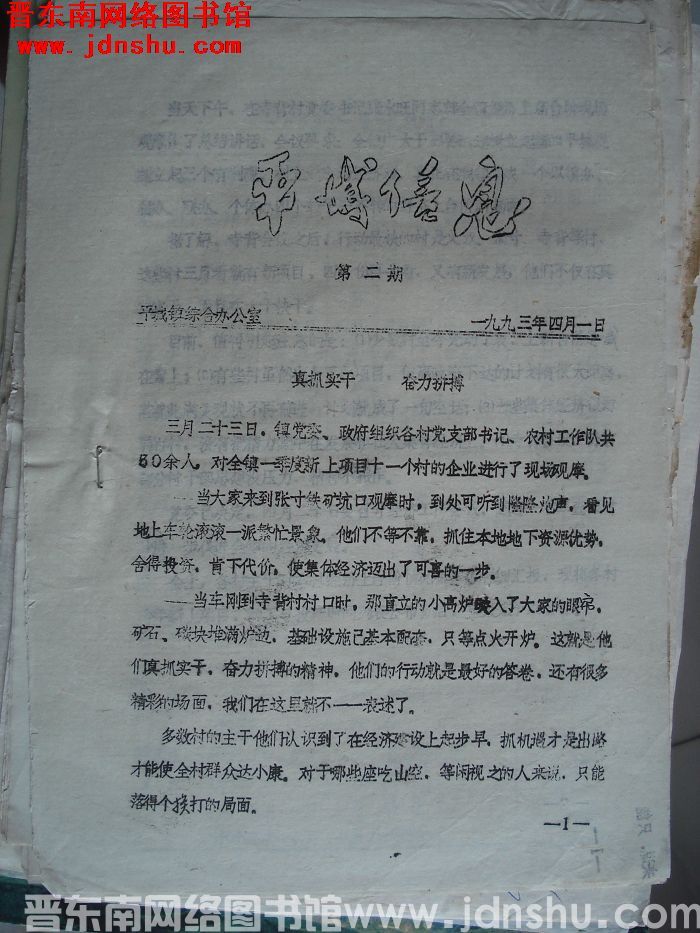 晋东南网络图书馆
www.jdnshu.com
平城信息
第二期
平城镇综合办公室 一九九三年四月一日
真抓实干 奋力拼搏
三月二十三日，镇党委、政府组织各村党支部书记、农村工作队共
50余人，对全镇一季度新上项目十一个村的企业进行了现场观摩。
——当大家来到张寸铁矿坑口观摩时，到处可听到隆隆炮声，看见
地上车轮滚滚一派繁忙景象。他们不等不靠，抓住本地地下资源优势，
舍得投资，肯下代价，使集体经济迈出了可喜的一步。
——当车刚到寺背村村口时，那直立的小高炉映入了大家的眼帘，
矿石、碳块堆满炉边，基础设施已基本配套，只等点火开炉。这就是他
们真抓实干，奋力拼搏的精神，他们的行动就是最好的答卷，还有很多
精彩的场面，我们在这里就不一一表述了。
多数村的主干他们认识到了在经济建设上起步早，抓机遇才是出路
才能使全村群众达小康。对于哪些座吃山空，等闲视之的人来说，只能
落得个挨打的局面。
—1—
晋东南网络图书馆 www.jdnshu.com